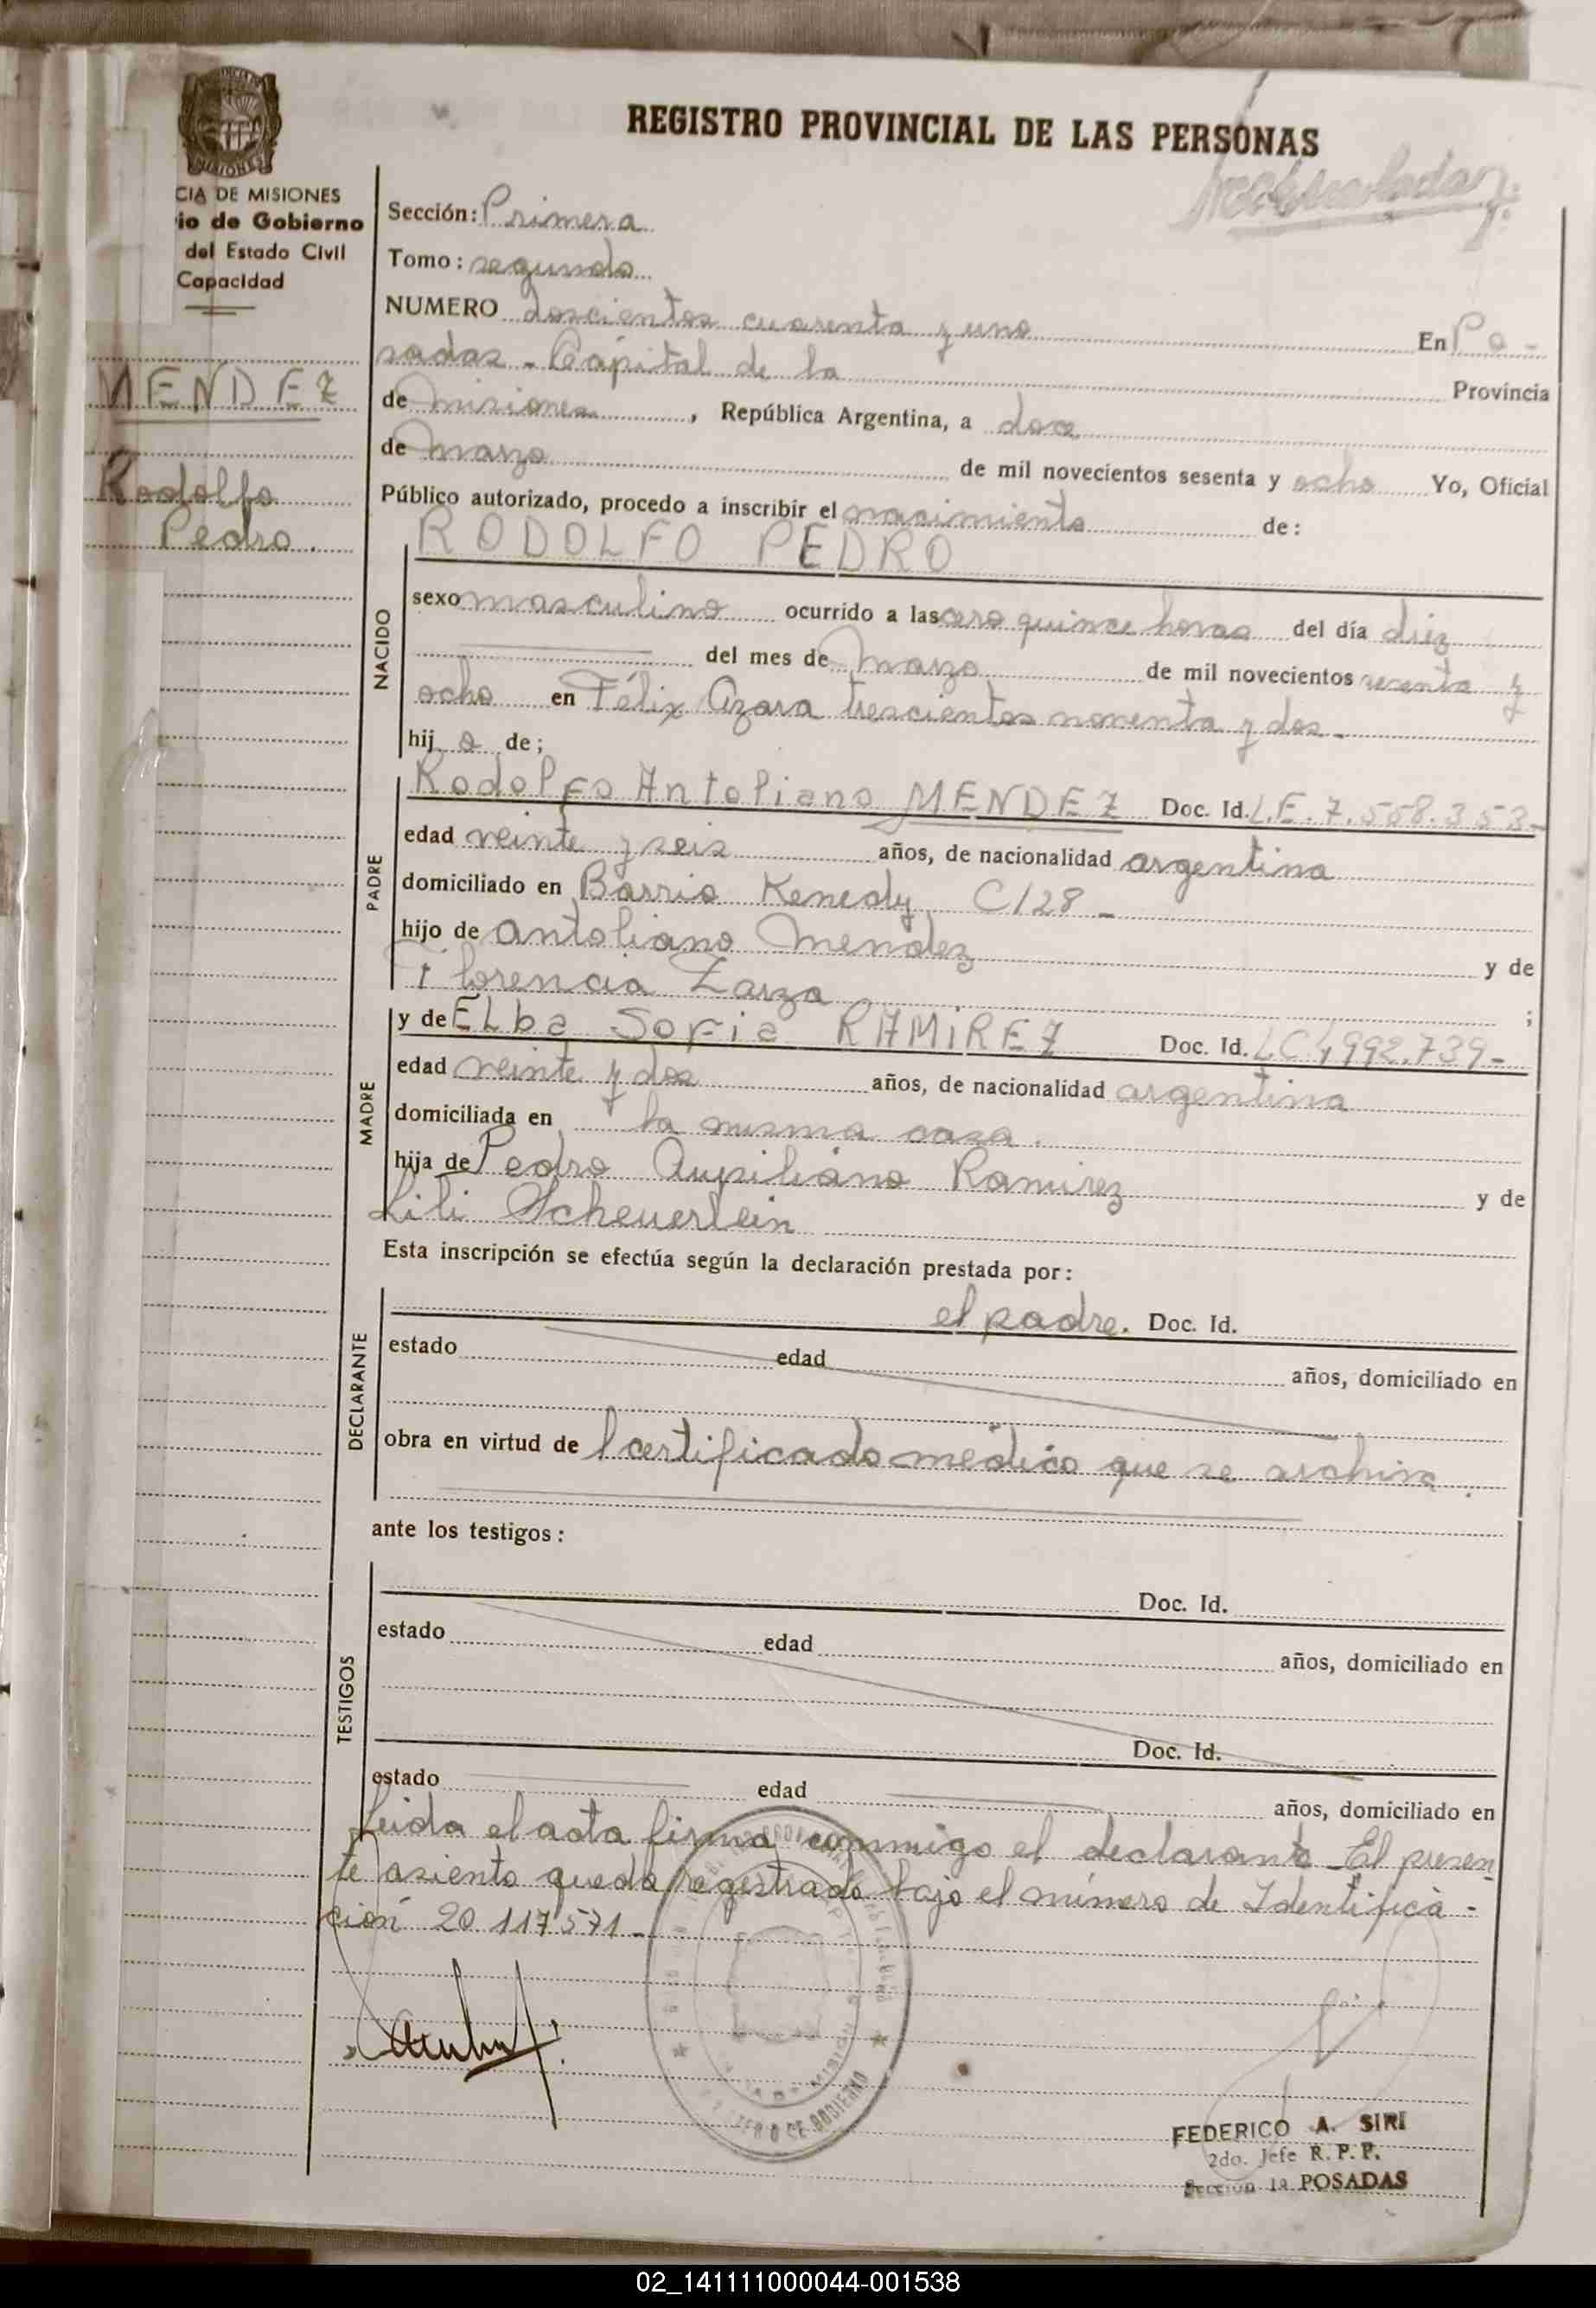 REGISTRO PROVINCIAL DE LAS PERSONAS
CIA DE MISIONES
io de Gobierno
del Estado Civil
Capacidad
MENDEZ
Rodolfo
Pedro.
Sección: Primera
Tomo: segundo
NUMERO doscientos cuarenta y uno En Po-
sadas - Capital de la Provincia
de Misiones, República Argentina, a doce
de Marzo de mil novecientos sesenta y ocho Yo, Oficial
Público autorizado, procedo a inscribir el nacimiento de:
RODOLFO PEDRO
NACIDO
sexo masculino ocurrido a las cero quince horas del día diez
del mes de Marzo de mil novecientos sesenta y
ocho en Félix Azara trescientos noventa y dos -
hij o de;
PADRE
Rodolfo Antoliano MENDEZ Doc. Id. L.E. 7.558.353-
edad veinte y seis años, de nacionalidad argentina
domiciliado en Barrio Kenedy C/28 -
hijo de Antoliano Mendez y de
Florencia Zarza ;
MADRE
y de ELba Sofia RAMIREZ Doc. Id. L.C. 4,992.739-
edad veinte y dos años, de nacionalidad argentina
domiciliada en la misma casa.
hija de Pedro Ramirez y de
Lili Scheuerlein
Esta inscripción se efectúa según la declaración prestada por:
DECLARANTE
el padre. Doc. Id.
estado edad años, domiciliado en
obra en virtud de l certificado médico que se archiva.
ante los testigos:
TESTIGOS
Doc. Id.
estado edad años, domiciliado en
Doc. Id.
estado edad años, domiciliado en
Leida el acta firma conmigo el declarante - El presen
te asiento queda registrado bajo el número de Identifica-
ción 20.117.571 -
FEDERICO A. SIRI
2do. Jefe R. P. P.
Sección 1a POSADAS
02_141111000044-001538